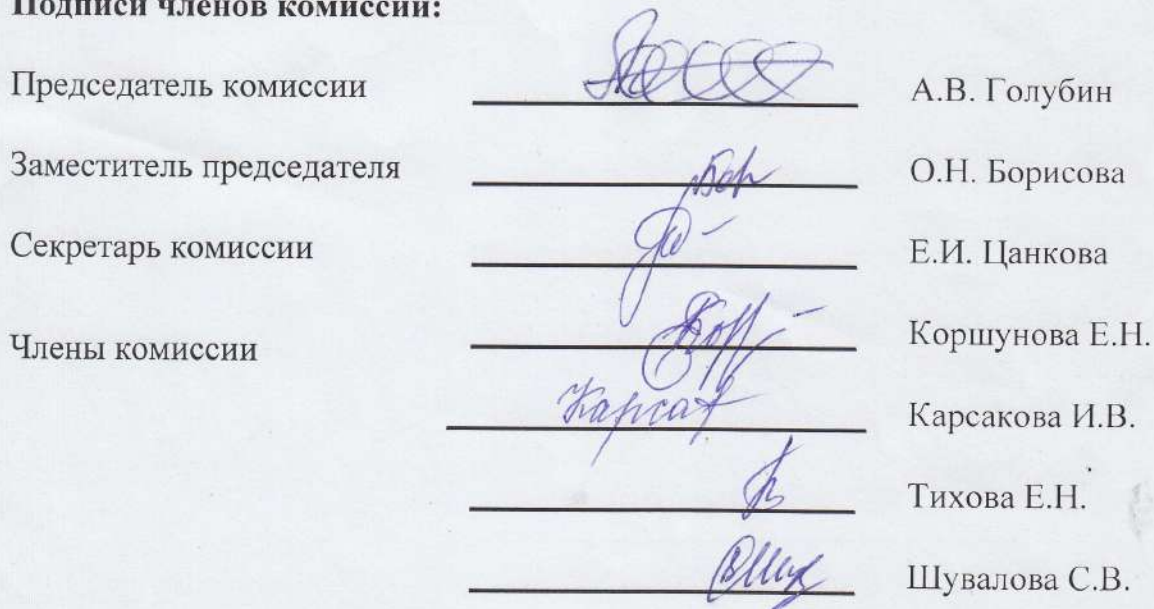 Подписи членов комиссии:
Председатель комиссии А.В. Голубин
Заместитель председателя Бор О.Н. Борисова
Секретарь комиссии Е.И. Цанкова
Члены комиссии Коршунова Е.Н.
Карсак Карсакова И.В.
Тихова Е.Н.
Шувалова С.В.